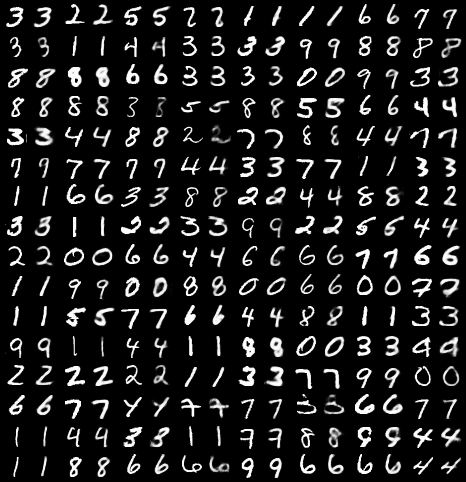 3 3 2 2 5 5 2 2 1 1 1 1 6 6 7 7
3 3 1 1 4 4 3 3 3 3 9 9 8 8 8 8
8 8 8 8 6 6 3 3 3 3 0 0 9 9 3 3
8 8 8 8 3 3 5 5 8 8 5 5 6 6 4 4
3 3 4 4 8 8 2 2 7 7 8 8 4 4 7 7
7 7 7 7 7 7 4 4 3 3 7 7 1 1 3 3
1 1 6 6 3 3 8 8 2 2 4 4 8 8 2 2
3 3 1 1 2 2 3 3 9 9 2 2 5 5 4 4
2 2 0 0 6 6 4 4 6 6 6 6 7 7 6 6
1 1 9 9 0 0 8 8 0 0 6 6 0 0 7 7
1 1 5 5 7 7 6 6 4 4 8 8 1 1 3 3
9 9 1 1 4 4 1 1 8 8 0 0 3 3 9 9
2 2 2 2 2 2 1 1 3 3 7 7 9 9 0 0
6 6 7 7 4 4 7 7 7 7 5 5 6 6 7 7
1 1 4 4 3 3 1 1 7 7 8 8 9 9 4 4
1 1 8 8 6 6 6 6 9 9 6 6 6 6 4 4